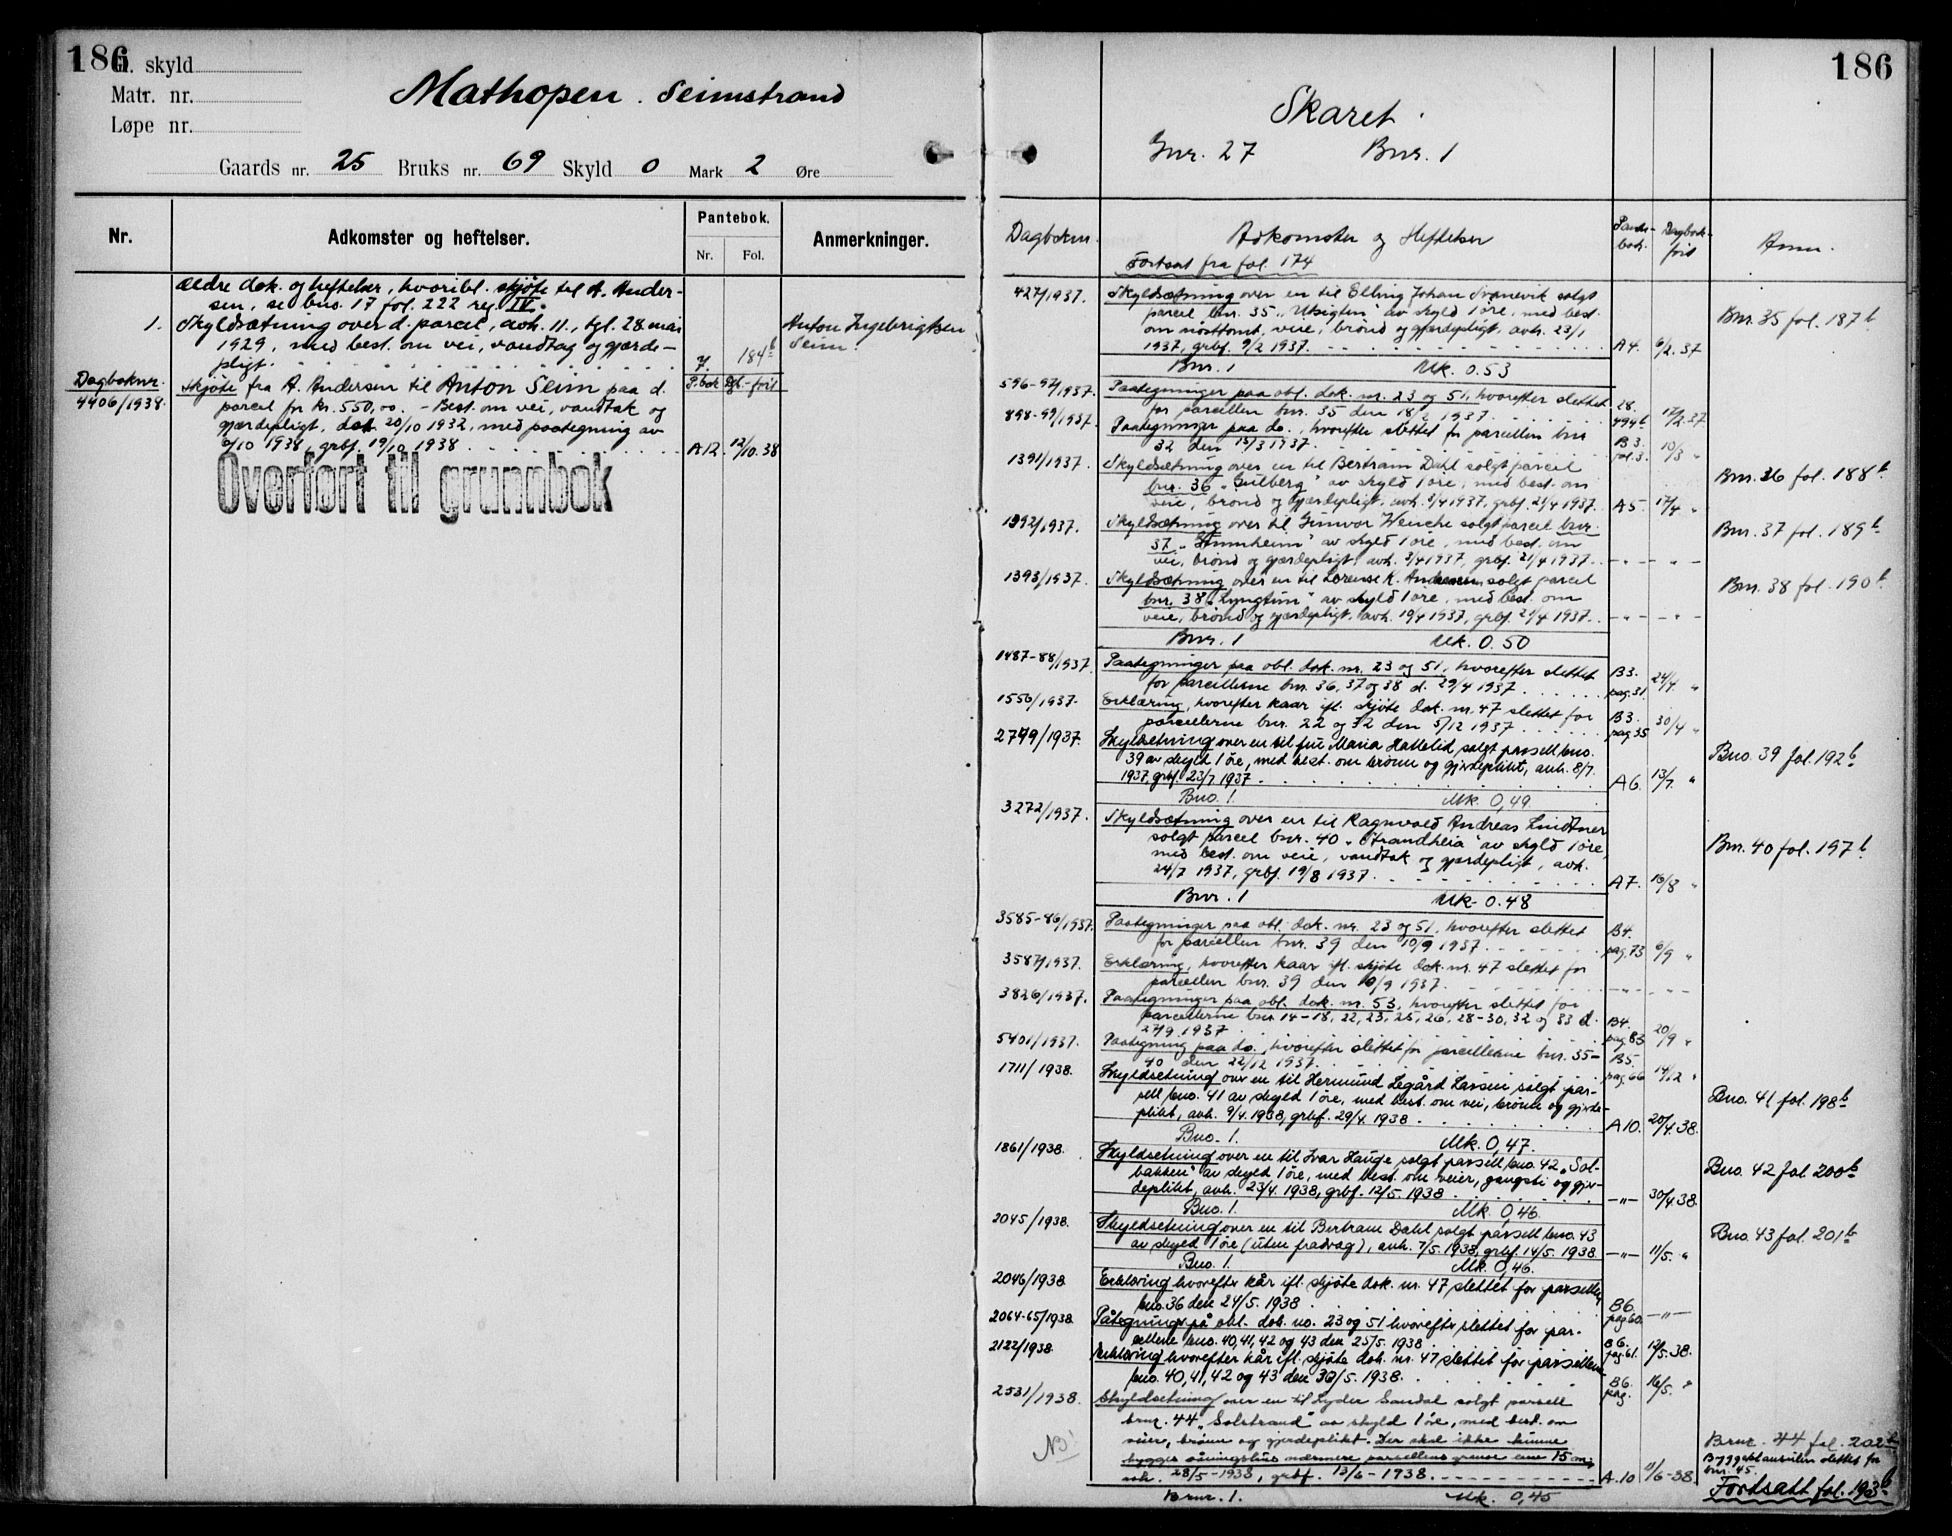 186
Gl. skyld
Matr. nr.
Løpe nr.
Mathopen. Seimstrand
Gaards nr. 25 Bruks nr. 69 Skyld 0 Mark 2 Øre
Nr.
Adkomster og heftelser.
Pantebok.
Nr. Fol.
Anmerkninger.
ældre dok. og heftelser, hvoribl. skjøte til A. Ander-
sen, se bno. 17 fol. 222 reg. IV.
1. Skyldsætning over d. parcel, avh. 11., tgl. 28 mai
1929, med best. om vei, vandtag og gjærde-
pligt. 7. 184b
Anton Ingebrigtsen
Seim.
Dagboknr.
4406/1938.
P.bok Dgb.-ført
Skjøte fra A. Andersen til Anton Seim paa d.
parcel for kr. 550,00. - Best. om vei, vandtak og
gjærdepligt, dat. 20/10 1932, med paategning av
/10 1938, grbf. 19/10 1938 A12. 12/10.38
Overført til grunnbok
186
Skaret.
Gnr. 27 Bnr. 1
Dagboknr.
Adkomster og Heftelser
Pante-
bok.
Dagbok-
ført
Anm.
Fortsat fra fol. 174
427/1937. Skyldsætning over en til Elling Johan Svanevik solgt
parcel bnr. 35 "Utsigten" av skyld 1 øre, med best.
om nausttomt, veie, brønd og gjærdepligt, avh. 23/1
1937, grbf. 9/2 1937. A4. 6/2.37
Bnr. 35 fol. 187b
Bnr. 1 Mk. 0.53
596-97/1937. Paategninger paa obl. dok. nr. 23 og 51, hvorefter slettet
for parcellen bnr. 35 den 18/2 1937. 28. 494b 17/2.37
898-99/1937. Paategninger paa do., hvorefter slettet for parcellen bnr
32 den 15/3 1937. B3. fol.3. 10/3 "
1391/1937. Skyldsætning over en til Bertram Dahl solgt parcel
bnr. 36 "Gulberg" av skyld 1 øre, med best. om
veie, brønd og gjærdepligt, avh. 3/4 1937, grbf. 21/4 1937. A5. 17/4 "
Bnr. 36 fol. 188b
1392/1937. Skyldsætning over til Gunvor Wenche solgt parcel bnr.
37 av skyld 1 øre, med best. om
vei, brønd og gjærdepligt, avh. 3/4 1937, grbf. 21/4 1937. - " - - " -
Bnr. 37 fol. 189b
1393/1937. Skyldsætning over en til Lorense K. Andersen solgt parcel
bnr. 38 "Lyngtun" av skyld 1 øre, med best. om
veie, brønd og gjærdepligt, avh. 10/4 1937, grbf. 21/4 1937. - " - - " -
Bnr. 38 fol. 190b
Bnr. 1 Mk. 0.50
1487-88/1937. Paategninger paa obl. dok. nr. 23 og 51, hvorefter slettet
for parcellerne bnr. 36, 37 og 38 d. 29/4 1937. B3. pag.31. 24/4. "
1556/1937. Erklæring, hvorefter kaar ifl. skjøte dok. nr. 47 slettet for
parcellerne bnr. 22 og 32 den 5/12 1937. B3. pag.35 30/4 "
2749/1937. Skyldsetning over en til fru Maria Hatlelid solgt parsell bno.
39 av skyld 1 øre, med best. om brønn og gjerdeplikt, avh. 8/7.
1937, grbf. 23/7 1937. A6. 13/7. "
Bno. 39 fol. 192b
Bno. 1. Mk. 0,49.
3272/1937. Skyldsætning over en til Ragnvald Andreas Lindtner
solgt parcel bnr. 40 "Strandheia" av skyld 1 øre,
med best. om veie, vandtak og gjærdepligt, avh.
24/7 1937, grbf. 19/8 1937. A7. 16/8 "
Bnr. 40 fol. 197b
Bnr. 1 Mk. 0.48
3585-86/1937. Paategninger paa obl. dok. nr. 23 og 51, hvorefter slettet
for parcellen bnr. 39 den 10/9 1937. B4. pag.73 6/9 "
3587/1937. Erklæring, hvorefter kaar ifl. skjøte dok. nr. 47 slettet for
parcellen bnr. 39 den 10/9 1937. - " - - " -
3826/1937. Paategninger paa obl. dok. nr. 53, hvorefter slettet for
parcellerne bnr 14-18, 22, 23, 25, 26, 28-30, 32 og 33 d.
27/9 1937 B4. pag.83 20/9 "
5401/1937. Paategning paa do., hvorefter slettet for parcellerne bnr. 35-
40 den 22/12 1937. B5. pag.66 14/12 "
1711/1938. Skyldsetning over en til Hermund Legård Larsen solgt par-
sell bno. 41 av skyld 1 øre, med best. om vei, brønn og gjerde-
plikt, avh. 9/4. 1938, grbf. 29/4. 1938. A10. 20/4.38.
Bno. 41 fol. 198b
Bno. 1. Mk. 0,47.
1861/1938. Skyldsetning over en til Ivar Hauge solgt parsell bno. 42 "Sol-
bakken" av skyld 1 øre, med best. om veier, gangsti og gjer-
deplikt, avh. 23/4. 1938, grbf. 12/5. 1938 -"- 30/4.38.
Bno. 42 fol. 200b
Bno. 1. Mk. 0,46.
2045/1938. Skyldsetning over en til Bertram Dahl solgt parsell bno. 43
av skyld 1 øre (uten fradrag), avh. 7/5. 1938, grbf. 14/5. 1938 -"- 11/5. "
Bno. 43 fol. 201b
Bno. 1. Mk. 0,46.
2046/1938. Erklæring hvorefter kår ifl. skjøte dok. nr. 47 slettet for parsellen
bno. 36 den 24/5. 1938 B6. pag.60. -"-
2064-65/1938. Påtegninger på obl. dok. no. 23 og 51 hvorefter slettet for par-
sellene bno. 40, 41, 42 og 43 den 25/5. 1938. B6. pag.61. 12/5.38.
2122/1938. Erklæring hvorefter kår ifl. skjøte dok. nr. 47 slettet for parsellene
bno. 40, 41, 42 og 43 den 30/5. 1938. B6. pag. 16/5. "
2531/1938. Skyldsetning over en til Lyder Sandal solgt parsell
brnr. 44 "Solstrand" av skyld 1 øre, med best. om
veier, brønn og gjerdeplikt. Der skal ikke kunne
bygges våningshus nærmere parsellens grense enn 15 m,
avh. 28/5-1938, grbf. 13/6-1938. A.10 11/6-38.
NB!
Brnr. 44 fol. 202b
Byggeklausulen slettet for
bnr. 45.
Fortsatt fol. 193b
Brnr. 1. Mk. 0,45